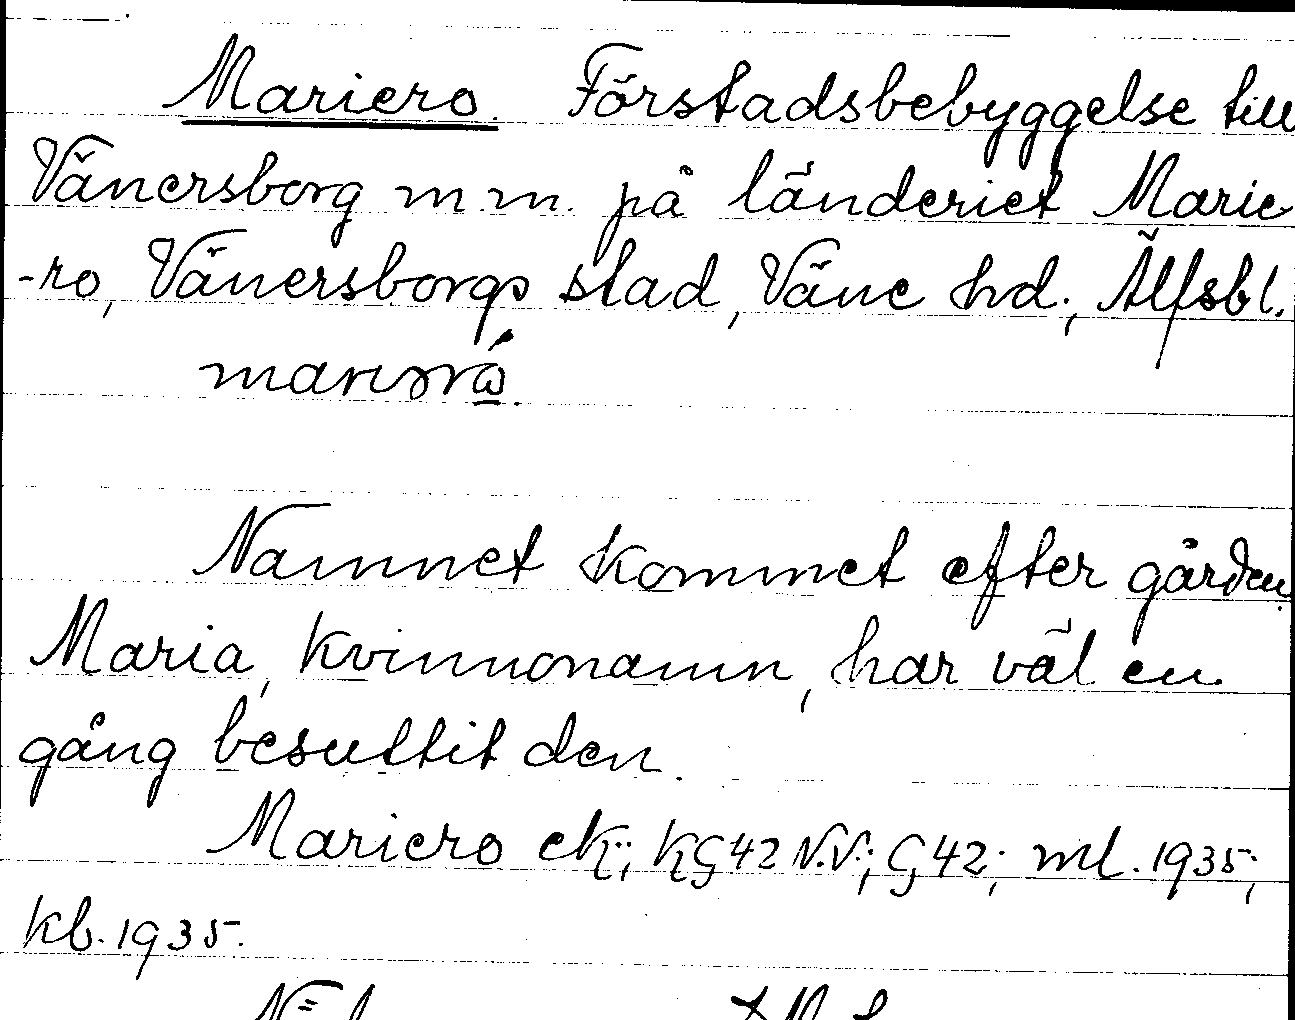 Mariero. Förstadsbebyggelse till
Vänersborg m.m. på länderiet Marie
-ro, Vänersborgs stad, Väne hd., Älfsbl.
Namnet kommet efter gården.
Maria, kvinnonamn, har väl en
gång besuttit den.
Mariero ek.; KG42 N.V.; G42; ml. 1935;
kb. 1935.